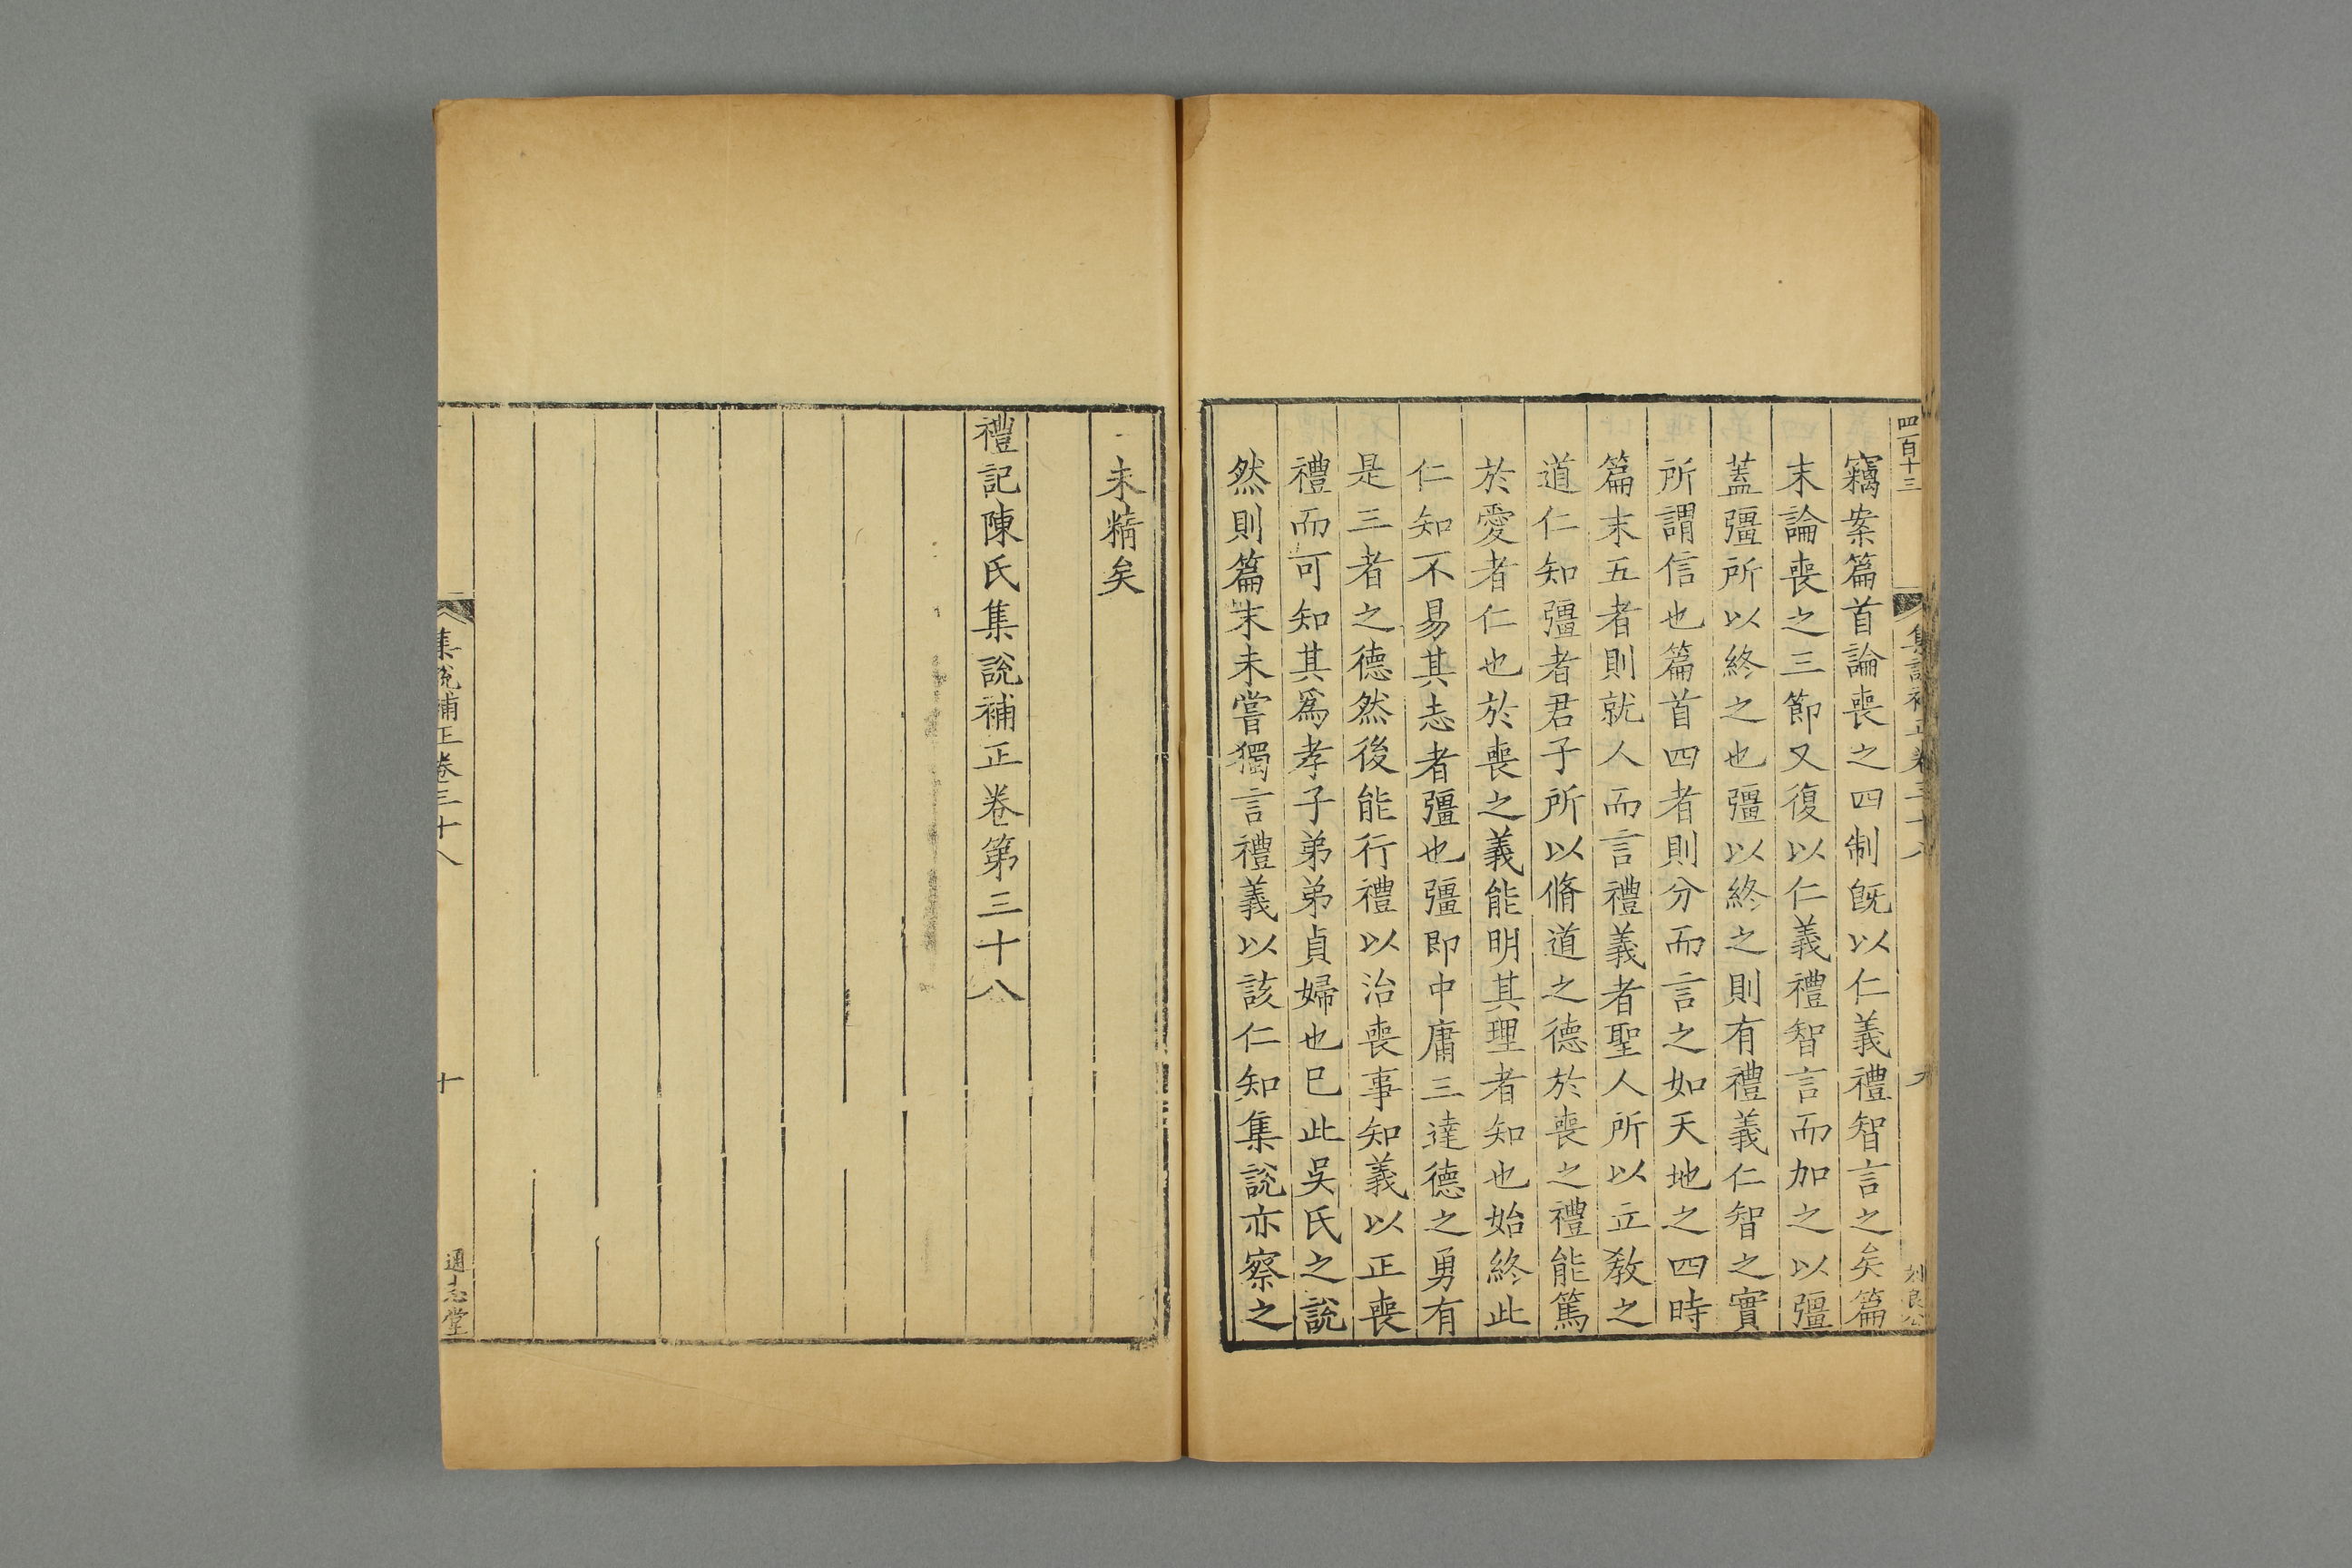 四百十三
集說補正卷三十八
九
竊案篇首論喪之四制旣以仁義禮智言之矣篇
末論喪之三節又復以仁義禮智言而加之以彊
蓋彊所以終之也彊以終之則有禮義仁智之實
所謂信也篇首四者則分而言之如天地之四時
篇末五者則就人而言禮義者聖人所以立敎之
道仁知彊者君子所以脩道之德於喪之禮能篤
於愛者仁也於喪之義能明其理者知也始終此
仁知不易其志者彊也彊即中庸三達德之勇有
是三者之德然後能行禮以治喪事知義以正喪
禮而可知其爲孝子弟弟貞婦也已此吳氏之說
然則篇末未嘗獨言禮義以該仁知集說亦察之
未精矣
禮記陳氏集說補正卷第三十八
集說補正卷三十八
十
通志堂